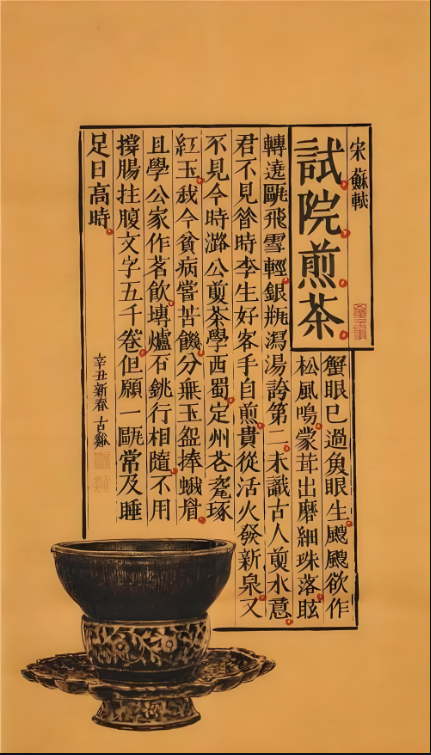 宋 蘇軾
試院煎茶
蟹眼已過魚眼生颼颼欲作
松風鳴蒙茸出磨細珠落眩
轉遶甌飛雪輕銀瓶瀉湯誇第二未識古人煎水意
君不見昝時李生好客手自煎貴從活火發新泉又
不見今時潞公煎茶學西蜀定州花瓷琢
紅玉我今貧病嘗苦饑分無玉盌捧蛾眉
且學公家作茗飲塼爐石銚行相隨不用
撐腸拄腹文字五千卷但願一甌常及睡
足日高時
辛丑新春 古谿